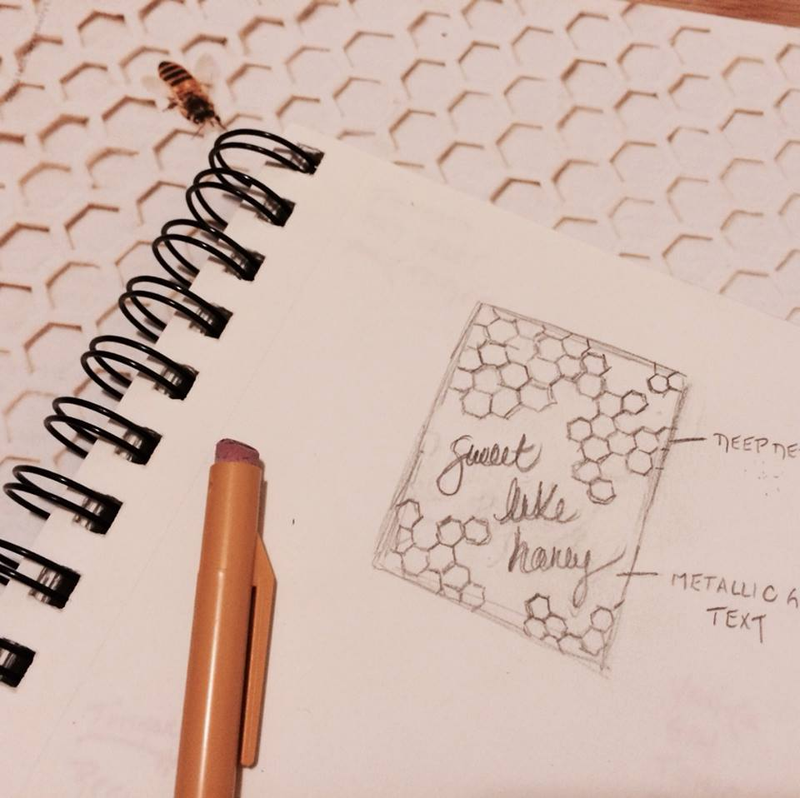 sweet
like
honey
DEEP DE
METALLIC
TEXT